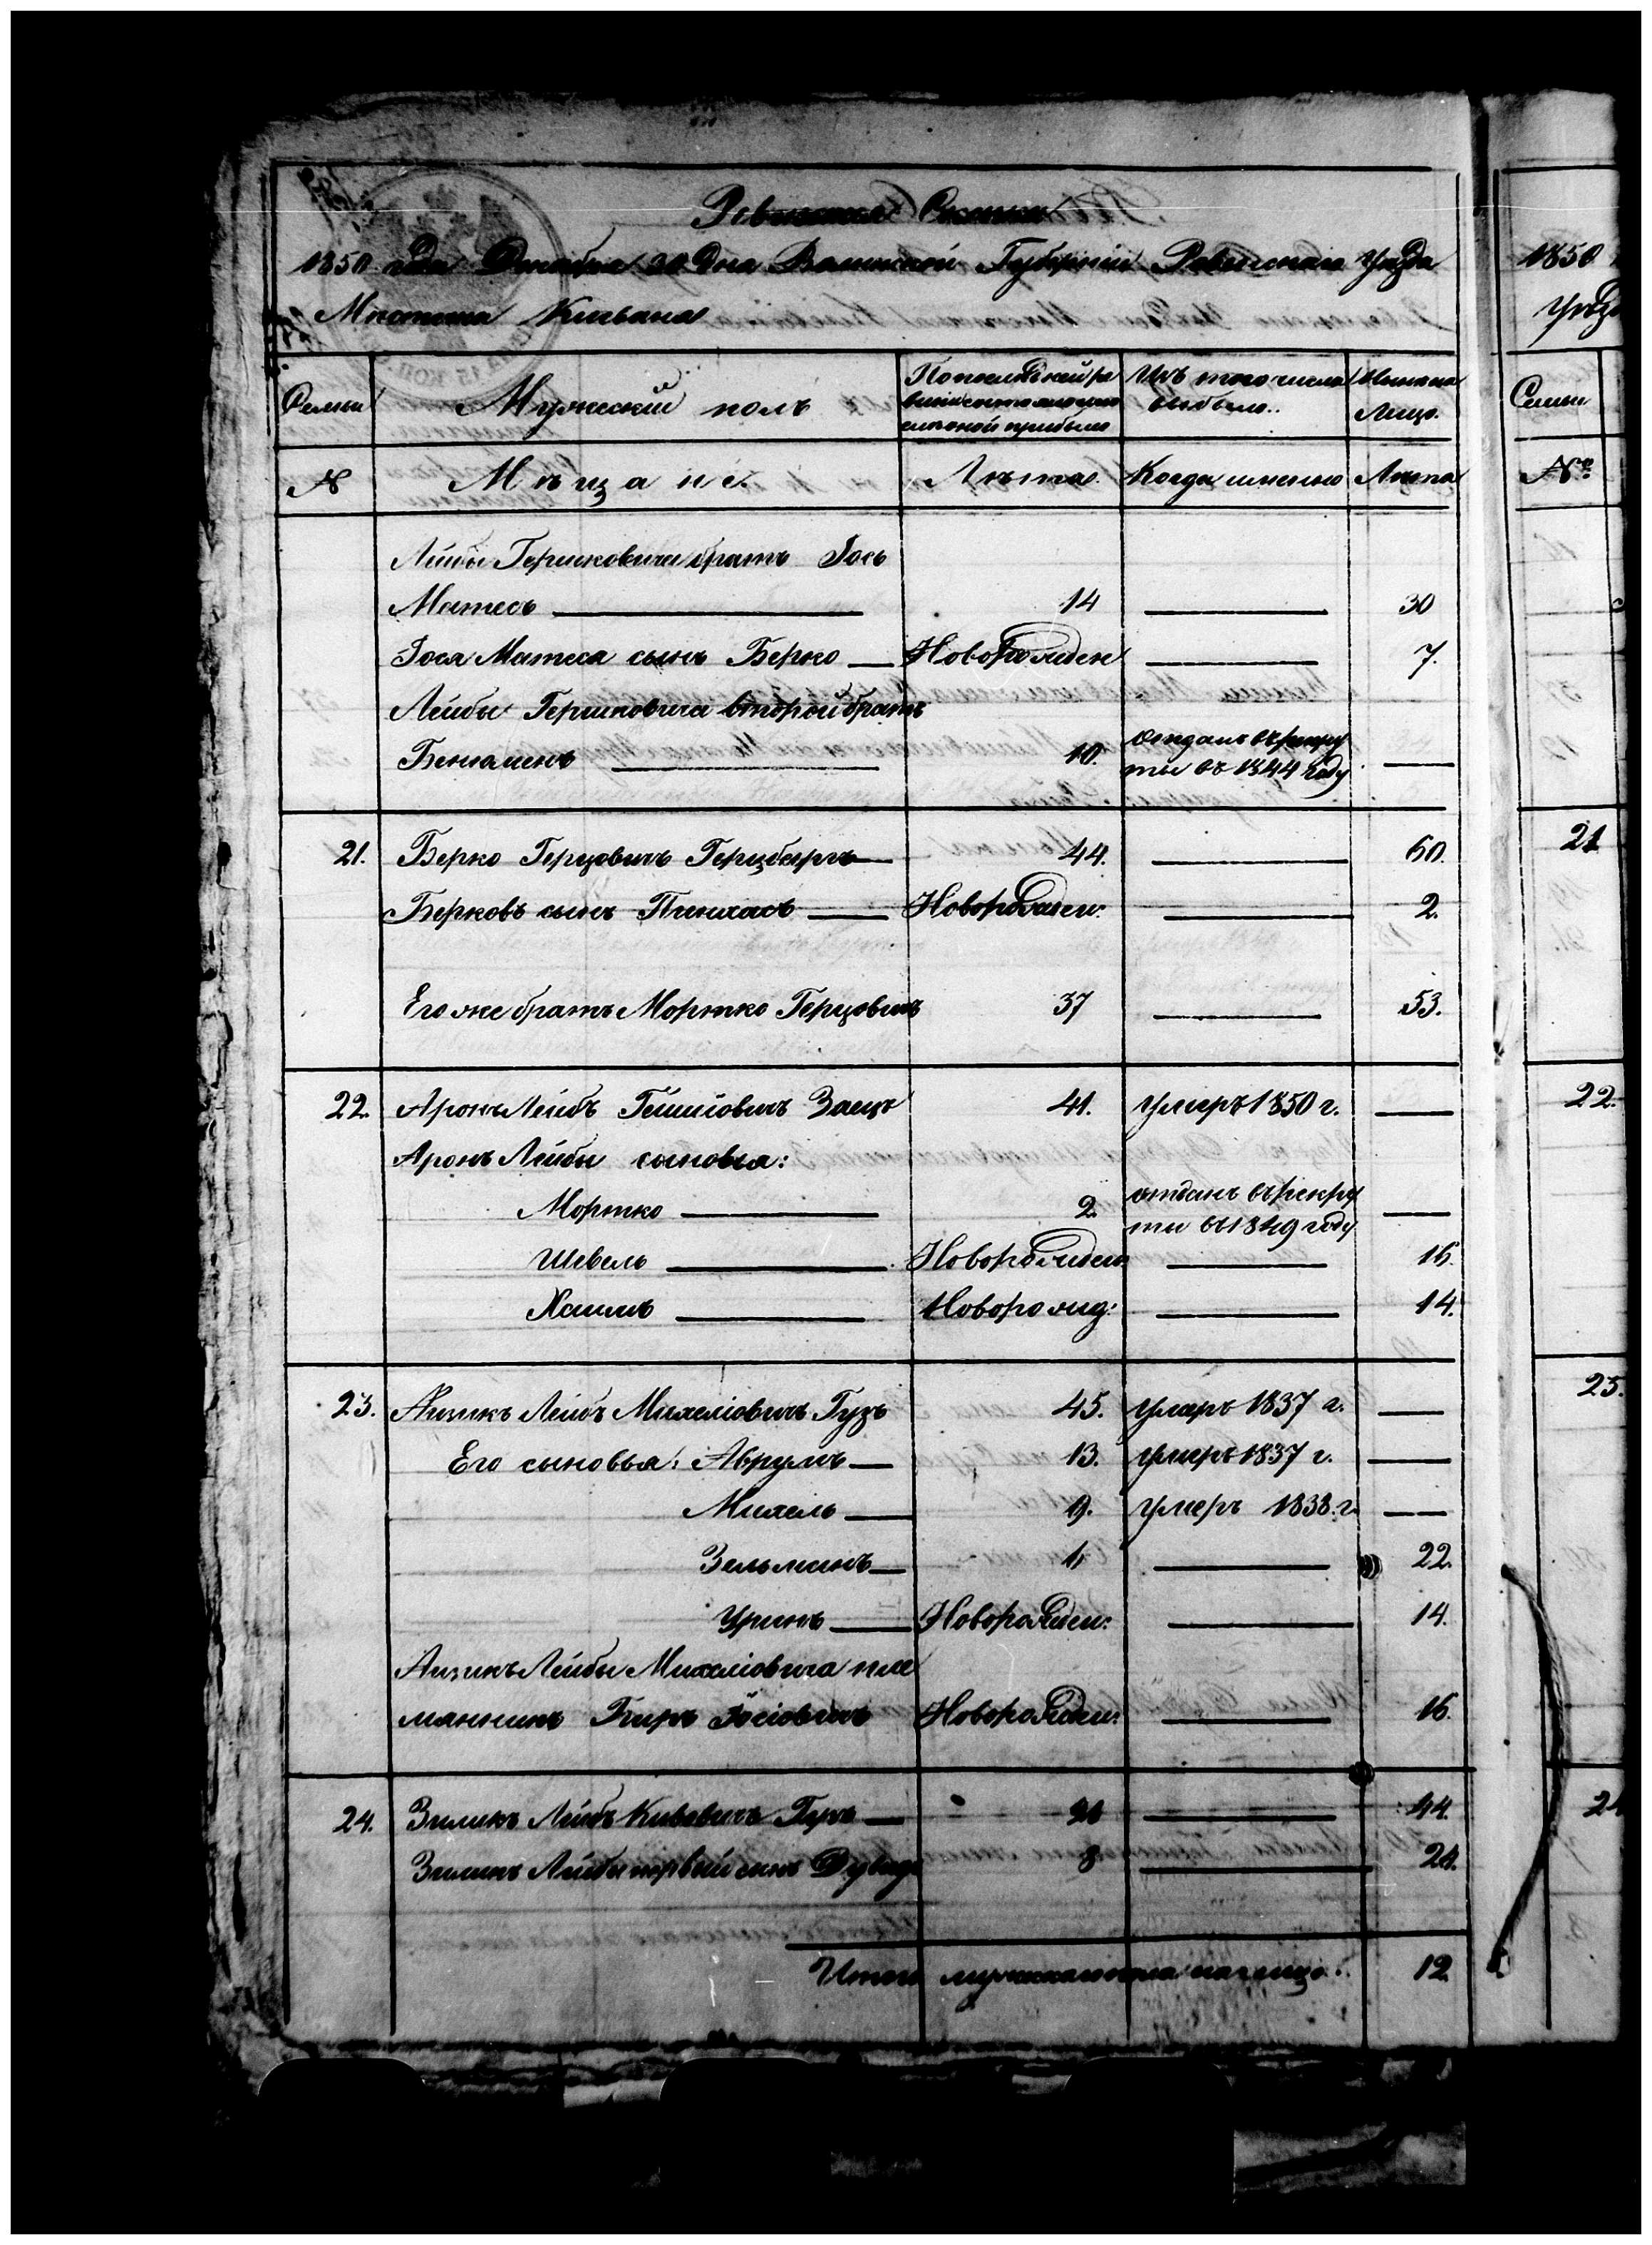 Ревизская Сказка
1850 года Декабря 30 дня Волынской Губернии Ровенскаго уезда
Местечка Клевана
Семьи
Мужескій полъ
По последней ре
визіи состояло и после
оной прибыло
Изъ того числа
выбыло..
Ныне на
Лицо.
№
Мѣщане.
Лѣта.
Когда именно
Лѣта
Лейбы Гершковича братъ Іось
Матесъ 14 30
Іося Матеса сынъ Берко Новорожден 7.
Лейбы Гершковича второй братъ
Беніаменъ 10. отданъ въ рекру
ты въ 1844 году
21. Берко Герцовичъ Герцбергъ 44. 60.
Берковъ сынъ Пинхасъ Новорожден: 2.
Его же братъ Мортко Герцовичъ 37 53.
22. Аронъ Лейбъ Заецъ 41. умеръ 1850 г.
Аронъ Лейбы сыновья:
Мортко 2. отданъ въ рекру
ты въ 1849 году
Шевель Новорожден 16.
Хаимъ Новорожд: 14.
23. Айзикъ Лейбъ Михеліовичъ Гузъ 45. умеръ 1837 г.
Его сыновья: Аврумъ 13. умеръ 1837 г.
Михель 9. умеръ 1838. г.
Зельманъ 1, 22.
Уринъ Новорожден: 14.
Айзикъ Лейбы Михеліовича пле
мянникъ Іосіовичъ Новорожден: 16.
24. Зеликъ Лейбъ 44.
Зеликъ Лейбы первый сынъ Дувидъ 8 24.
Итого мужескаго пола на лицо. 12
1850
уезд
Семьи
№
21
22.
23.
24